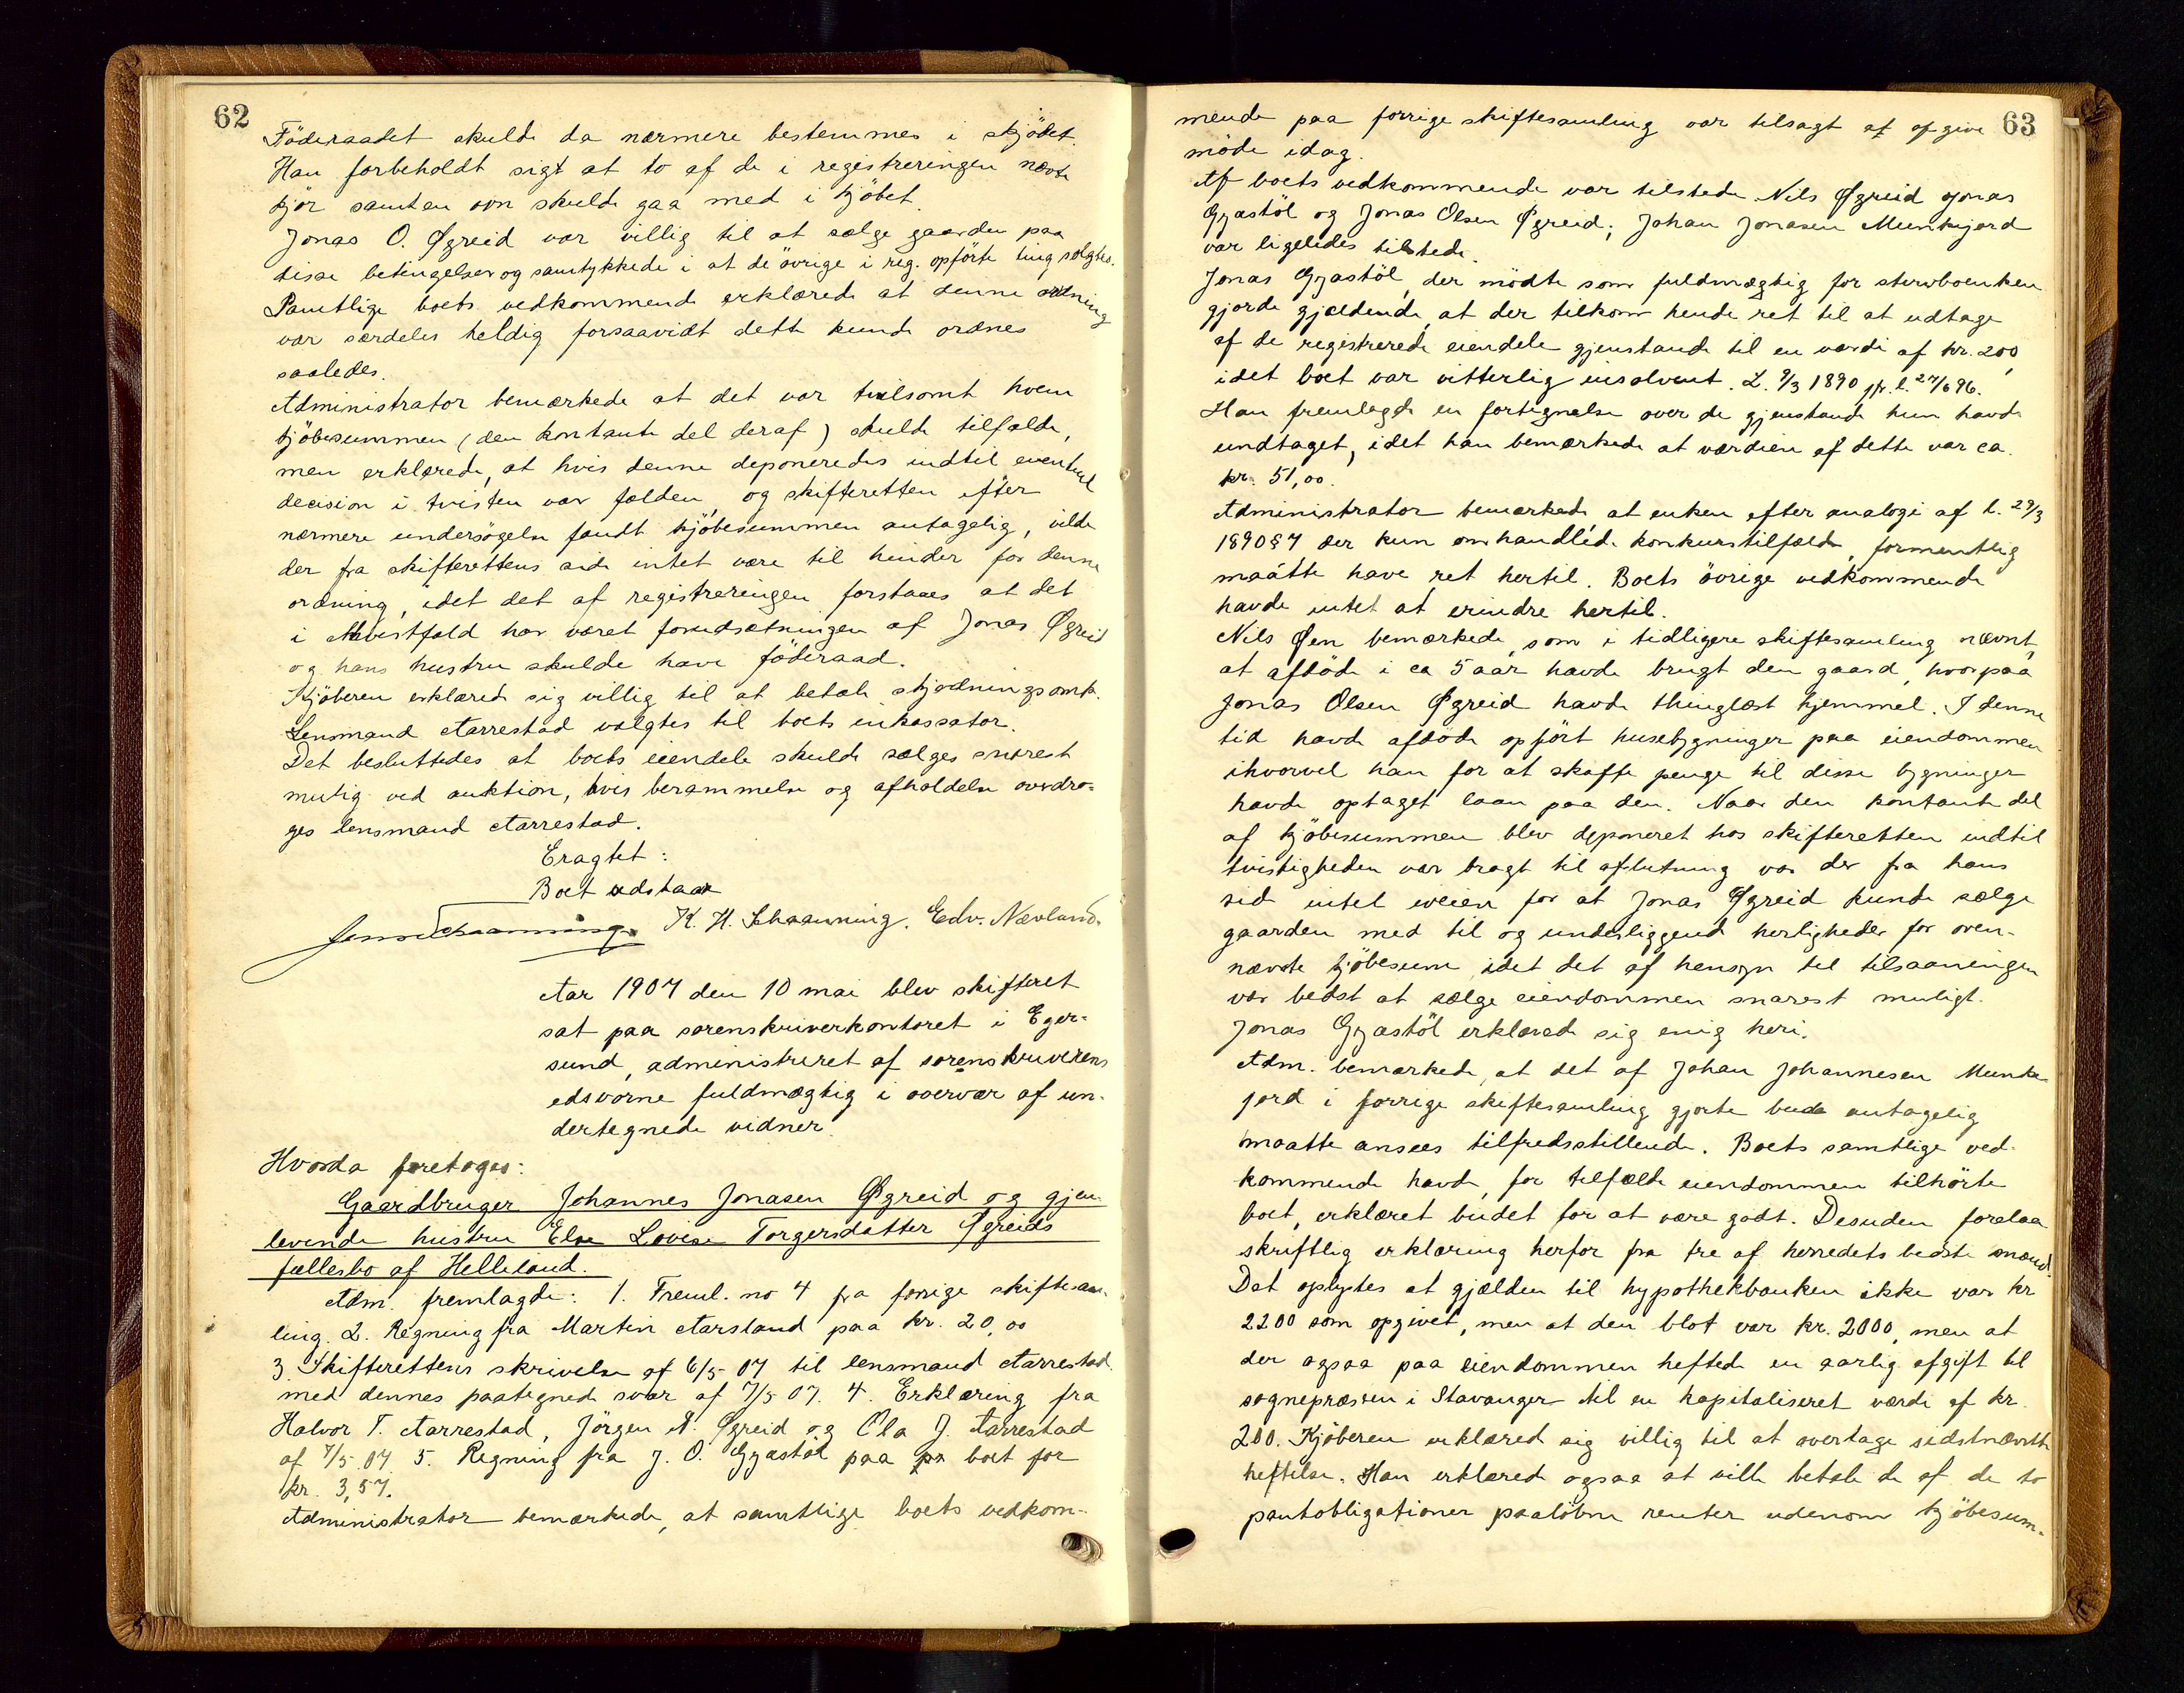 62
Föderaadet skulde da nærmere bestemmes i skjödet.
Han forbeholdt sigt at to af de i registreringen nævte
kjör samt en ovn skulde gaa med i kjöbet.
Jonas O. Øgreid var villig til at sælge gaarden paa
disse betingelser og samtykkede i at de övrige i reg. opförte ting solgtes.
Samtlige boets vedkommende erklærede at denne ordning
var særdeles heldig forsaavidt dette kunde ordnes
saaledes.
Administrator bemærkede at det var tvilsomt hvem
kjöbesummen (den kontante del deraf) skulde tilfalde,
men erklærede, at hvis denne deponeredes indtil eventuel
decision i tvisten var falden, og skifteretten efter
nærmere undersögelse fandt kjöbesummen antagelig, vilde
der fra skifterettens side intet være til hinder for denne
ordning, idet det af registreringen forstaaes at det
i hvertfald har været forudsætningen af Jonas Øgreid
og hans hustru skulde have föderaad.
Kjöberen erklæred sig villig til at betale skjødningsomk.
Lensmand Aarrestad valgtes til boets inkassator.
Det besluttedes at boets eiendele skulde sælges snarest
mulig ved auktion, hvis berammelse og afholdelse overdro-
ges lensmand Aarrestad.
Eragtet:
Boet udstaar
Jens Schaanning K. H. Schaanning. Edv. Nævland.
Aar 1907 den 10 mai blev skifteret
sat paa sorenskriverkontoret i Eger-
sund, administreret af sorenskriverens
edsvorne fuldmægtig i overvær af un-
dertegnede vidner.
Hvorda foretoges:
Gaardbruger Johannes Jonasen Øgreid og gjen-
levende hustru Else Lovise Torgersdatter Øgreids
fællesbo af Helleland.
Adm. fremlagde: 1. Freml. no 4 fra forrige skiftesam-
ling. 2. Regning fra Martin Aarstad paa kr. 20,00
3. Skifterettens skrivelse af 6/5 07 til lensmand Aarrestad
med dennes paategnede svar af 7/5 07. 4. Erklæring fra
Halvor T. Aarrestad, Jörgen A. Øgreid og Ola J. Aarrestad
af 7/5.07 5. Regning fra J. O. Gyastöl paa boet for
kr. 3,57.
Administrator bemærkede, at samtlige boets vedkom-
63
mende paa forrige skiftesamling var tilsagt at opgive
möde idag.
Af boets vedkommende var tilstede Nils Øgreid Jonas
Gyastöl og Jonas Olsen Øgreid; Johan Jonasen Munkejord
var ligeledes tilstede.
Jonas Gyastöl, der mödte som fuldmægtig for stervboenken
gjorde gjældende, at der tilkom hende ret til at udtage
af de registrerede eiendele gjenstande til en værdi af kr. 200,
idet boet var vitterlig insolvent. L. 9/3 1890 jfr. l. 27/6 96.
Han fremlagde en fortegnelse over de gjenstande hun havde
undtaget, idet han bemærkede at værdien af dette var ca.
kr. 51,00.
Administrator bemærkede at enken efter analogi af l. 29/3
1890 § 7 der kun omhandlede konkurstilfælde, formentlig
maatte have ret hertil. Boets övrige vedkommende
havde intet at erindre hertil.
Nils Øen bemærkede, som i tidligere skiftesamling nævnt,
at afdöde i ca 5 aar havde brugt den gaard, hvorpaa
Jonas Olsen Øgreid havde thinglæst hjemmel. I denne
tid havde afdöde opfört husebygninger paa eiendommen
ihvorvel han for at skaffe penge til disse bygninger
havde optaget laan paa den. Naar den kontante del
af kjöbesummen blev deponeret hos skifteretten indtil
tvistigheden var bragt til afslutning var der fra hans
side intet iveien for at Jonas Øgreid kunde sælge
gaarden med til og underliggende herligheder for oven-
nævnte kjöbesum, idet det af hensyn til tilsaaningen
var bedst at sælge eiendommen snarest muligt.
Jonas Gyastöl erklærede sig enig heri.
Adm. bemærkede, at det af Johan Johannesen Munke-
jord i forrige skiftesamling gjorte bud antagelig
maatte ansees tilfredsstillende. Boets samtlige ved-
kommende havde, for tilfælde eiendommen tilhörte
boet, erklæret budet for at være godt. Desuden forelaa
skriftlig erklæring herfor fra tre af herredets bedste mænd.
Det oplystes at gjælden til hypothekbanken ikke var kr
2200 som opgivet, men at den blot var kr. 2000, men at
der ogsaa paa eiendommen heftede en aarlig afgift til
sognepræsten i Stavanger til en kapitaliseret værdi af kr.
200. Kjöberen erklæred sig villig til at overtage sidstnævnte
heftelse. Han erklæred ogsaa at ville betale de af de to
pantobligationer paalöbne renter udenom kjöbesum-